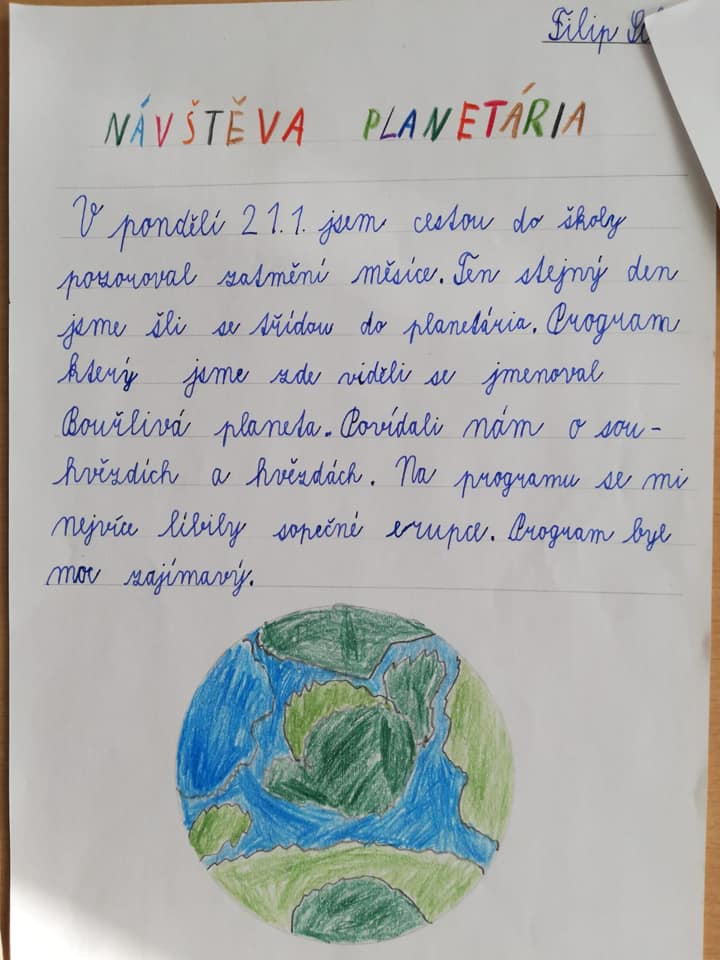 Filip
NÁVŠTĚVA PLANETÁRIA
V pondělí 21.1. jsem cestou do školy
pozoroval zatmění měsíce. Ten stejný den
jsme šli se třídou do planetária. Program
který jsme zde viděli se jmenoval
Bouřlivá planeta. Povídali nám o sou-
hvězdích a hvězdách. Na programu se mi
nejvíce líbily sopečné erupce. Program byl
moc zajímavý.